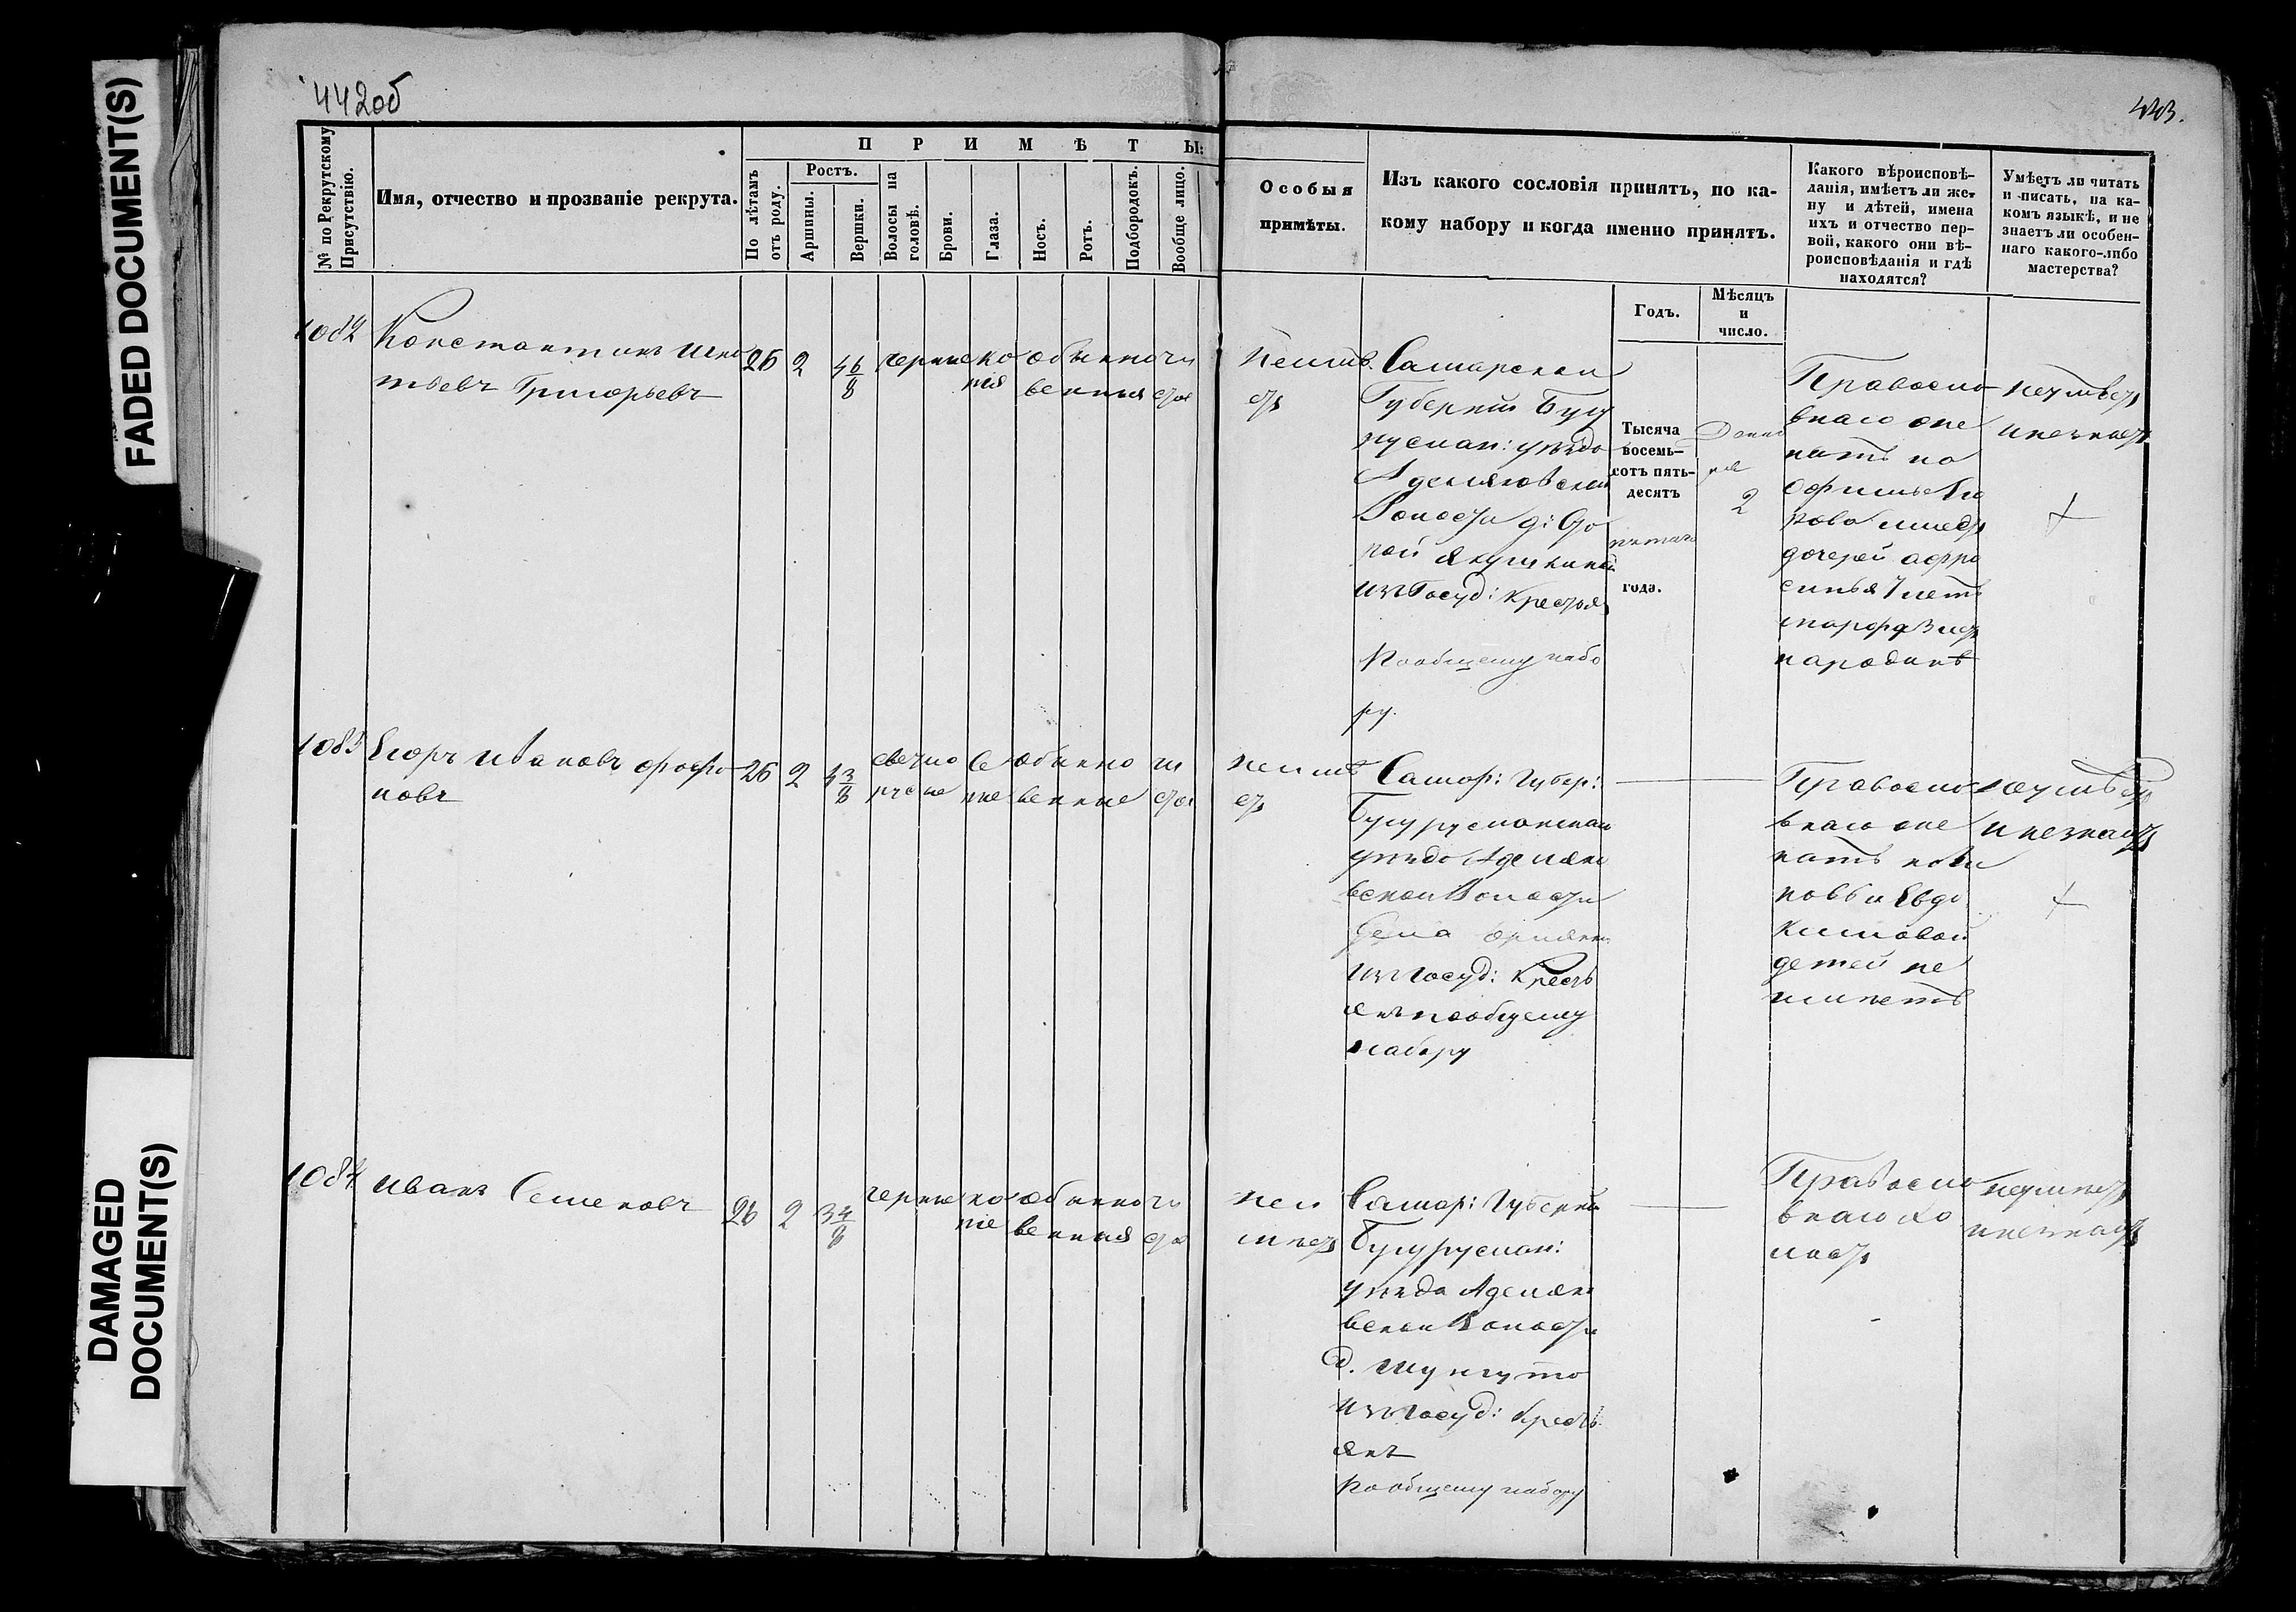 FADED DOCUMENT(S)
DAMAGED
DOCUMENT(S)
442об
443.
№ по Рекрутскому
Присутствію.
Имя, отчество и прозваніе рекрута.
ПРИМѢТЫ:
По лѣтамъ
отъ роду.
Ростъ.
Аршины.
Вершки.
Волосы на
головѣ.
Брови.
Глаза.
Носъ.
Ротъ.
Подбородокъ.
Вообще лицо.
Особыя
примѣты.
Изъ какого сословія принятъ, по ка-
кому набору и когда именно принятъ.
Годъ.
Мѣсяцъ
и
число.
Какого вѣроисповѣ-
данія, имѣетъ ли же-
ну и дѣтей, имена
ихъ и отчество пер-
вой, какого они вѣ-
роисповѣданія и гдѣ
находятся?
Умѣетъ ли читать
и писать, на ка-
комъ языкѣ, и не
знаетъ ли особен-
наго какого-либо
мастерства?
Константинъ Игна
тьевъ Григорьевъ
26 2 4 6/8
черные ка
рія
обыкно
венныя
чи
стое
неимѣ
етъ
Самарской
Губерніи Бугу
руслан: уѣзда
Аделяковской
Волости д: Ста
рой Якушкиной
изъ Госуд: Крестья
По общему набо
ру.
Тысяча
восемь-
сотъ пять-
десятъ
пятаго
года.
2
Правосла
внаго же
натъ на
дочерей Афро
синья 7 летъ
Марфа 3 лет
на родинѣ
неумѣетъ
и незнаетъ
Егоръ Ивановъ
новъ
26 2 4 3/8
светло
русые
се
рые
обыкно
венные
чи
стое
неимѣ
етъ
Самар: Губер:
Бугурусланскаго
уѣзда Аделяко
вской Волости
Села
изъ Госуд: Кресть
янъ по общему
набору
Правосла
внаго же
натъ на
Евдо
кимовой
детей не
имѣетъ
неумѣетъ
и незнаетъ
1084
Иванъ Семеновъ
26 2 3 4/8
черные
ка
ріе
обыкно
венныя
чи
стое
неи
мѣетъ
Самар: Губерніи
Бугуруслан:
уѣзда Аделяко
вской Волости
д. Шунгута
изъ Госуд: Кресть
янъ
По общему набору
Правосла
внаго Хо
лостъ
неумѣетъ
и незнаетъ